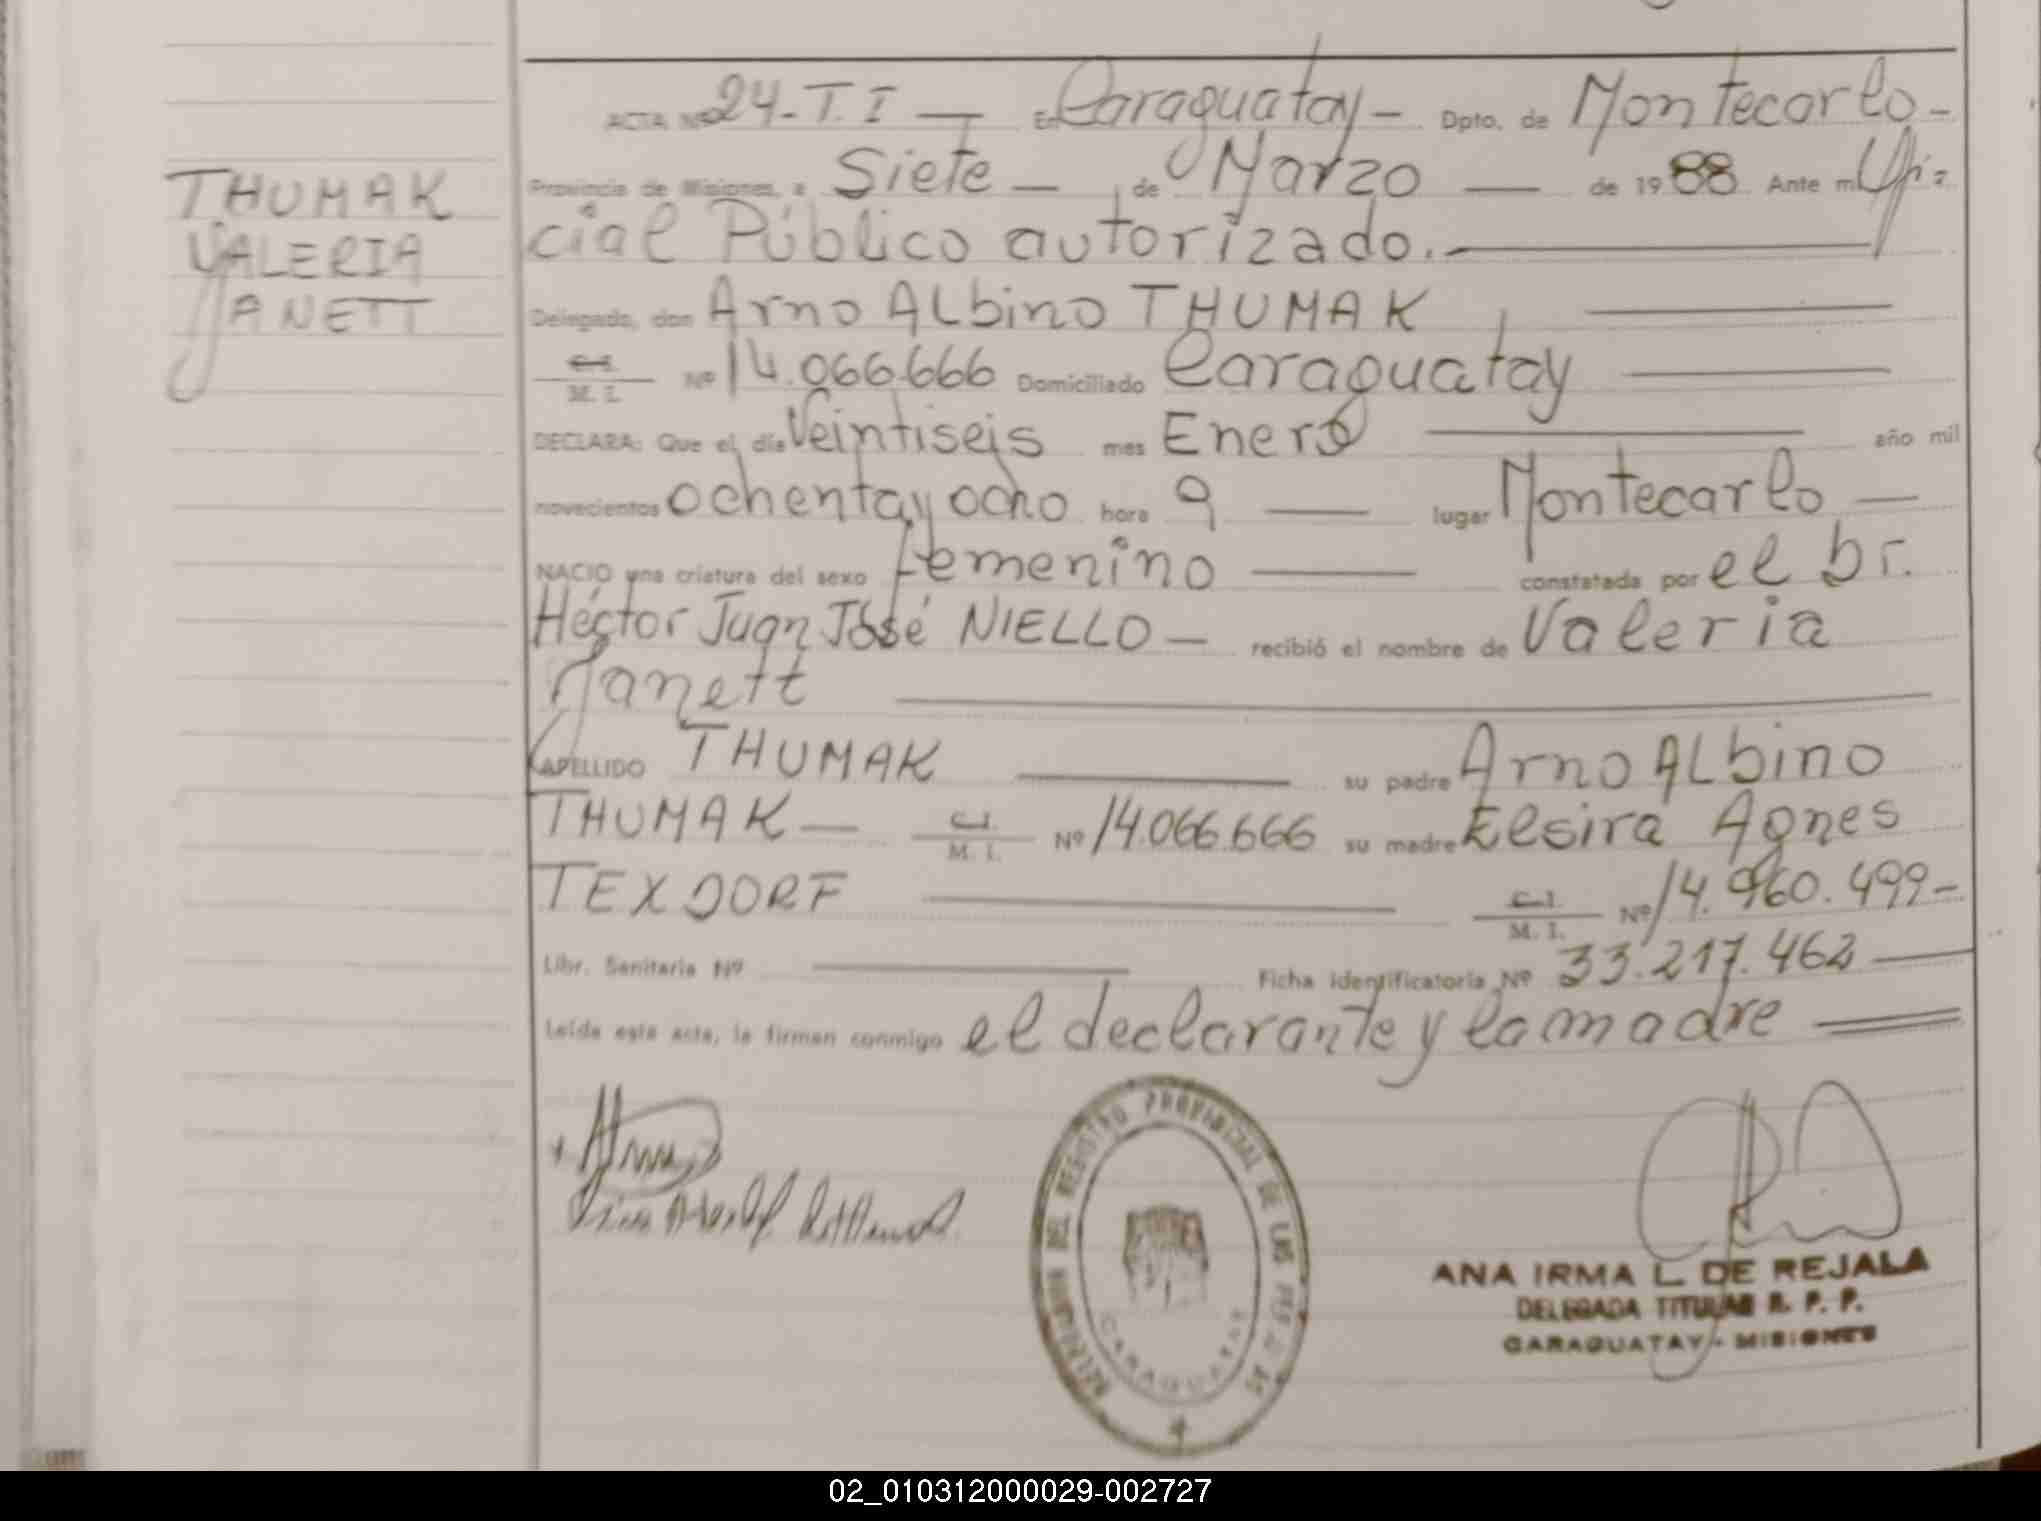 THUMAK
VALERIA
JANETT
ACTA Nº 24-T.I — En Caraguatay - Dpto. de Montecarlo -
Provincia de Misiones, a Siete — de Marzo — de 1988 Ante mi Ofi-
cial Público autorizado. —
Delegado, don Arno ALbino THUMAK —
C.I. M. I. Nº 14.066.666 Domiciliado Caraguatay —
DECLARA: Que el día Veintiseis mes Enero — año mil
novecientos ochenta y ocho hora 9 — lugar Montecarlo —
NACIO una criatura del sexo femenino — constatada por el Dr.
Héctor Juan José NIELLO — recibió el nombre de Valeria
Janett —
APELLIDO THUMAK — su padre Arno ALbino
THUMAK — C.I. M. I. Nº 14.066.666 su madre Elsira Agnes
TEXDORF — C.I. M. I. Nº 14.960.499-
Libr. Sanitaria Nº — Ficha identificatoria Nº 33.217.462 —
Leída esta acta, la firman conmigo el declarante y la madre =
DEL REGISTRO PROVINCIAL DE LAS
CARAGUATAY
ANA IRMA L. DE REJALA
DELEGADA TITULAR R. P. P.
CARAGUATAY - MISIONES
02_010312000029-002727